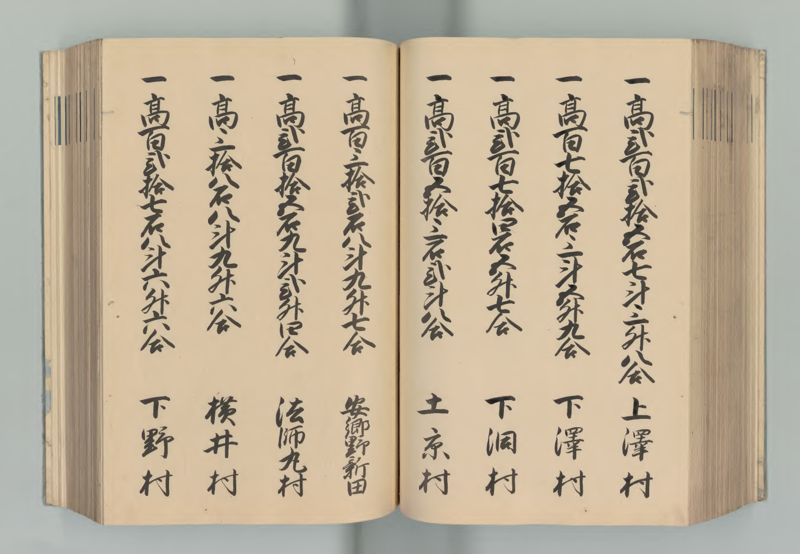 一高弐百弐拾五石七斗三升八合 上澤村
一高百七拾五石三斗五升九合 下澤村
一高弐百七拾四石五升七合 下洞村
一高弐百五拾三石弐斗八合 土京村
一高百三拾弐石八斗九升七合 安郷野新田
一高弐百拾五石九斗弐升四合 法師丸村
一高三拾八石八斗九升六合 横井村
一高百弐拾七石八斗六升六合 下野村